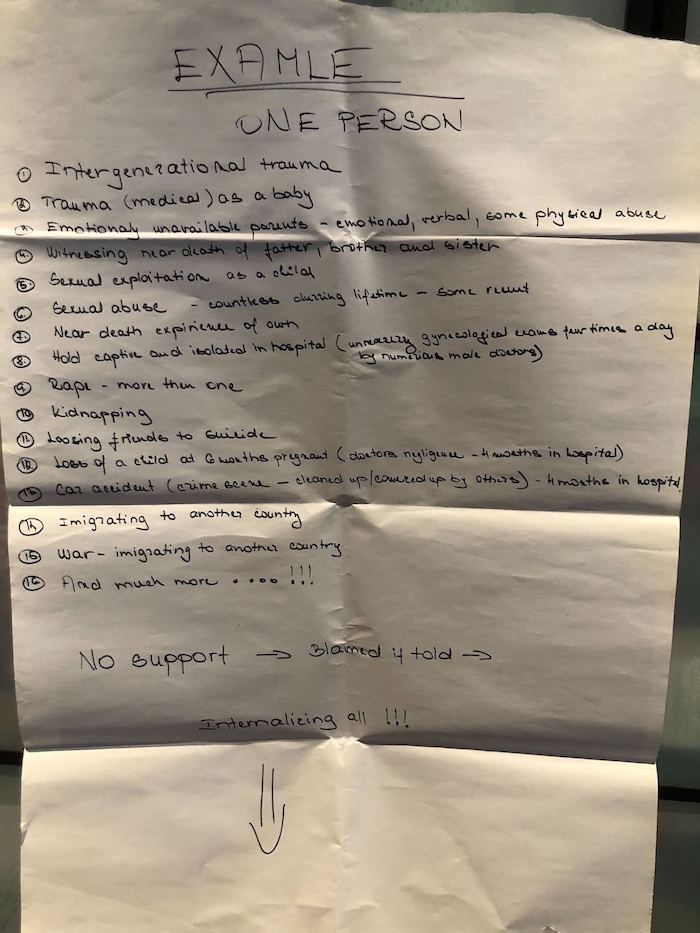 EXAMLE
ONE PERSON
1. Intergenerational trauma
2. Trauma (medical) as a baby
3. Emotionaly unavailable parents - emotional, verbal, some physical abuse
4. Witnessing near death of father, brother and sister
5. Sexual exploitation as a child
6. Sexual abuse - countless durring lifetime - some recent
7. Near death expirience of own
8. Hold captive and isolated in hospital (gynecological exams four times a day
by numerious male doctors)
9. Rape - more then one
10. Kidnapping
11. Loosing friends to suicide
12. Loss of a child at 6 months pregnant (doctors negligence - 4 months in hospital)
13. Car accident (crime scene - cleaned up/covered up by others) - 4 months in hospital
14. Imigrating to another country
15. War - imigrating to another country
16. And much more ..... !!!
No support → Blamed if told →
Internalizing all !!!